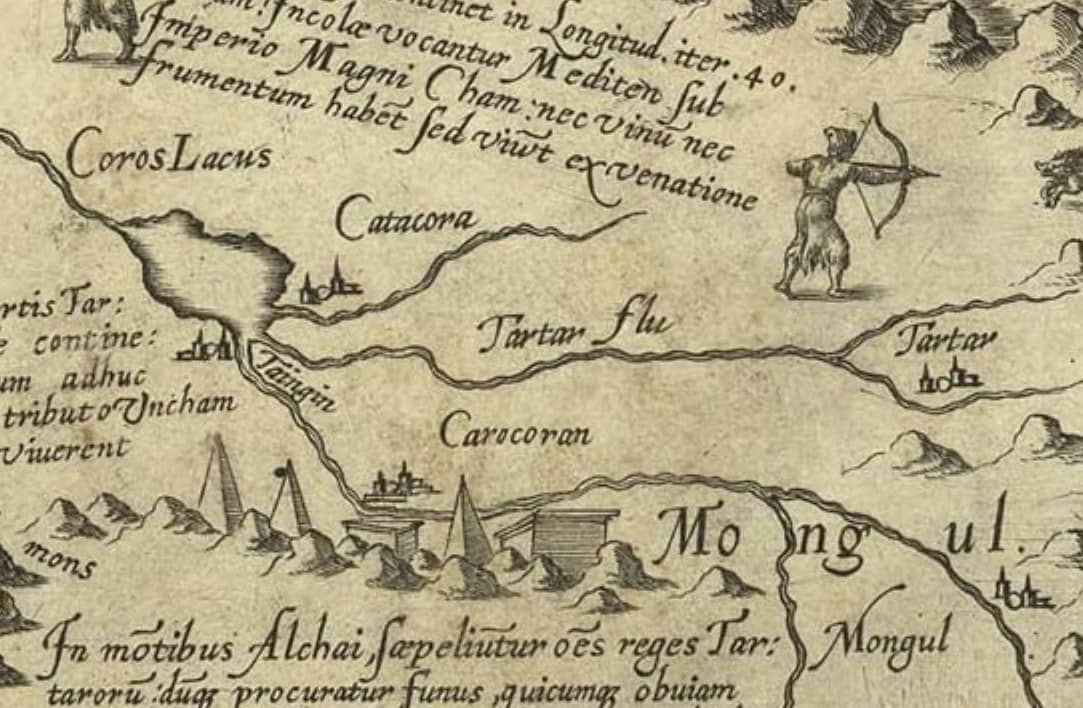 continet in Longitud. iter. 40.
am: Incolæ vocantur Mediten sub
Imperio Magni Cham: nec vinū nec
frumentum habēt sed viūt ex venatione
Coros Lacus
Catacora
rtis Tar:
e contine:
um adhuc
tributo Vncham
viuerent
Tartar flu
Tartar
Taingin
Carocoran
Mongul.
mons
Mongul
In mōtibus Alchai, sæpeliūtur oēs reges Tar:
tarorū: dūqꝫ procuratur funus, quicumqꝫ obuiam